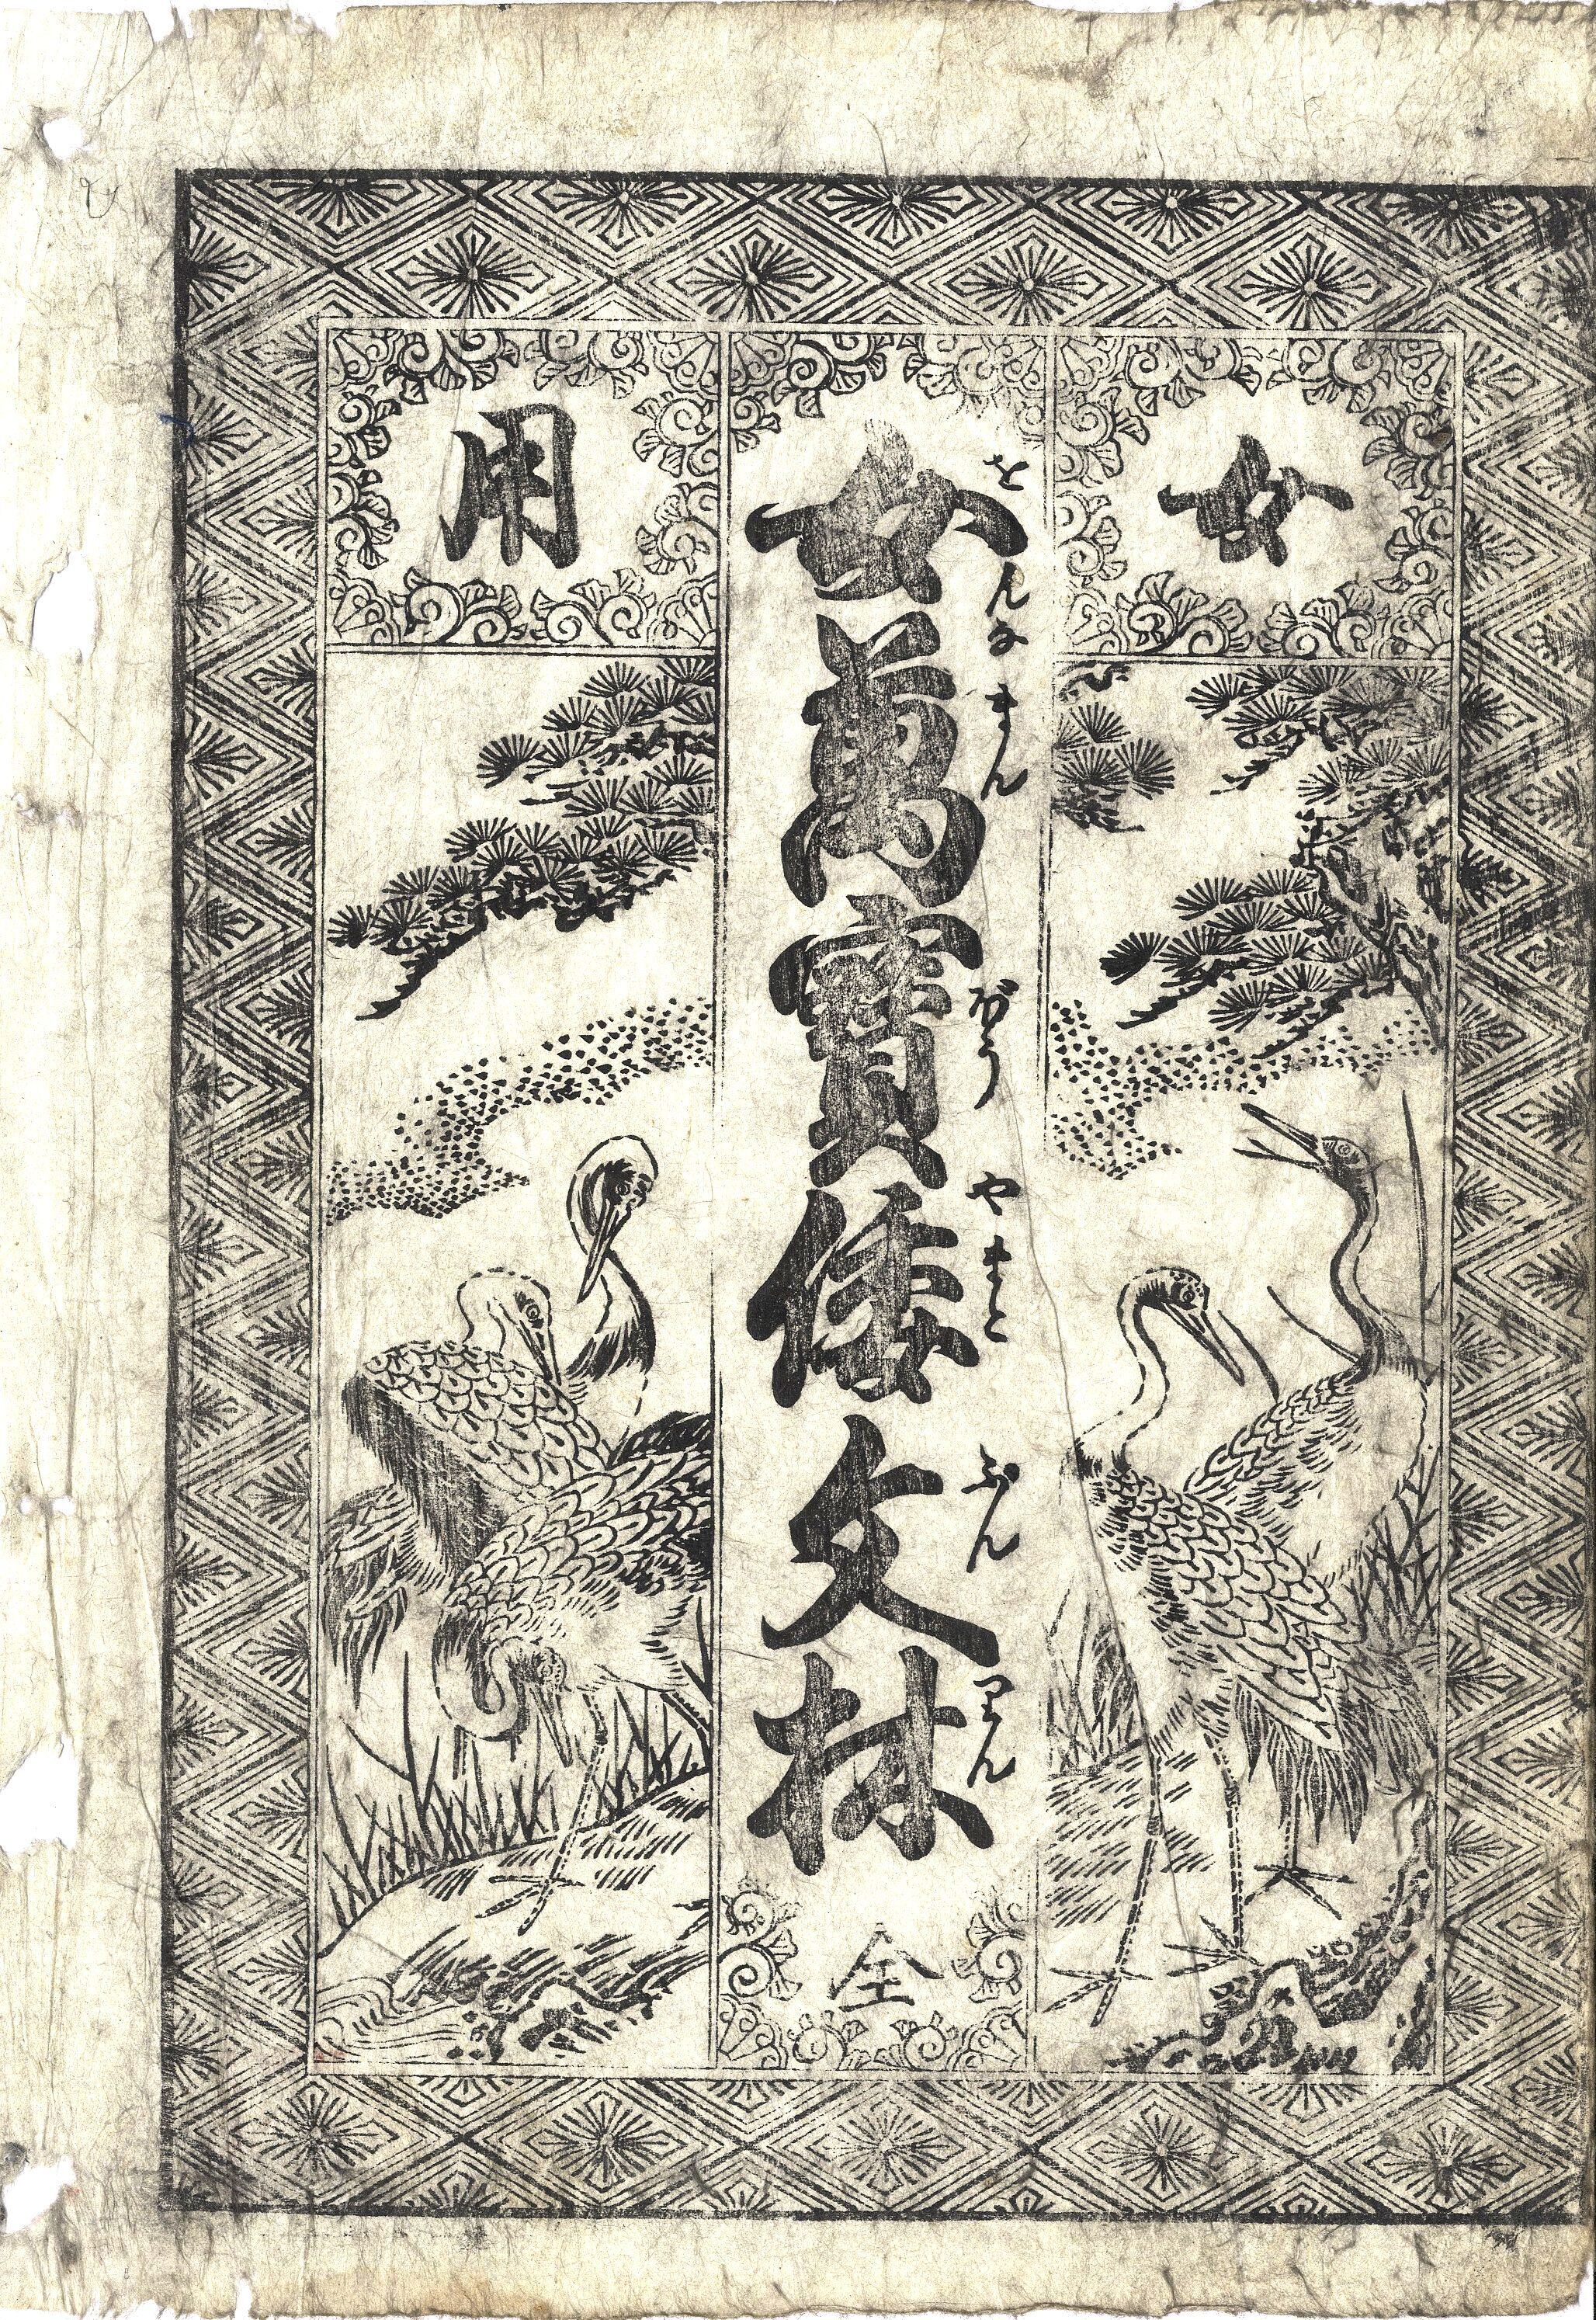 女
女萬寳倭文林
をんなまんぼうやまとぶんりん
全
用